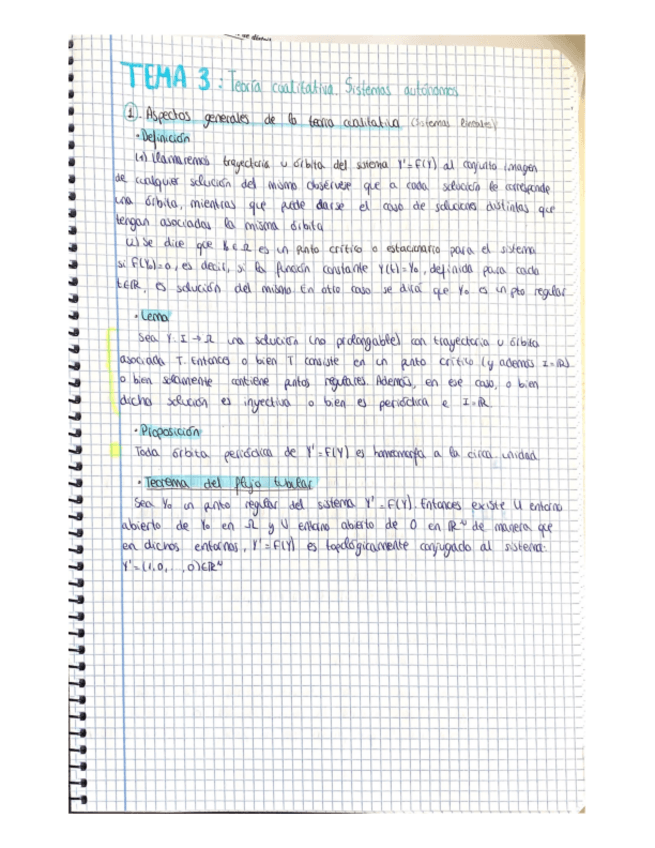 TEMA 3: Teoría cualitativa. Sistemas autónomos
1. Aspectos generales de la teoría cualitativa (Sistemas lineales)
· Definición
(1) Llamaremos trayectoria u órbita del sistema Y'=F(Y) al conjunto imagen
de cualquier solución del mismo. Obsérvese que a cada solución le corresponde
una órbita, mientras que puede darse el caso de soluciones distintas que
tengan asociadas la misma órbita
(2) Se dice que Y₀∈Ω es un punto crítico o estacionario para el sistema
si F(Y₀)=0, es decir, si la función constante Y(t)=Y₀, definida para cada
t∈ℝ, es solución del mismo. En otro caso se dirá que Y₀ es un pto regular
· Lema
Sea Y: I → Ω una solución (no prolongable) con trayectoria u órbita
asociada T. Entonces o bien T consiste en un punto crítico (y además I=ℝ)
o bien solamente contiene puntos regulares. Además, en ese caso, o bien
dicha solución es inyectiva o bien es periódica e I=ℝ
· Proposición
Toda órbita periódica de Y'=F(Y) es homeomorfa a la circu. unidad
· Teorema del flujo tubular
Sea Y₀ un punto regular del sistema Y'=F(Y). Entonces existe U entorno
abierto de Y₀ en Ω y V entorno abierto de 0 en ℝᴺ de manera que
en dichos entornos, Y'=F(Y) es topológicamente conjugado al sistema:
Y'=(1,0,...,0)∈ℝᴺ